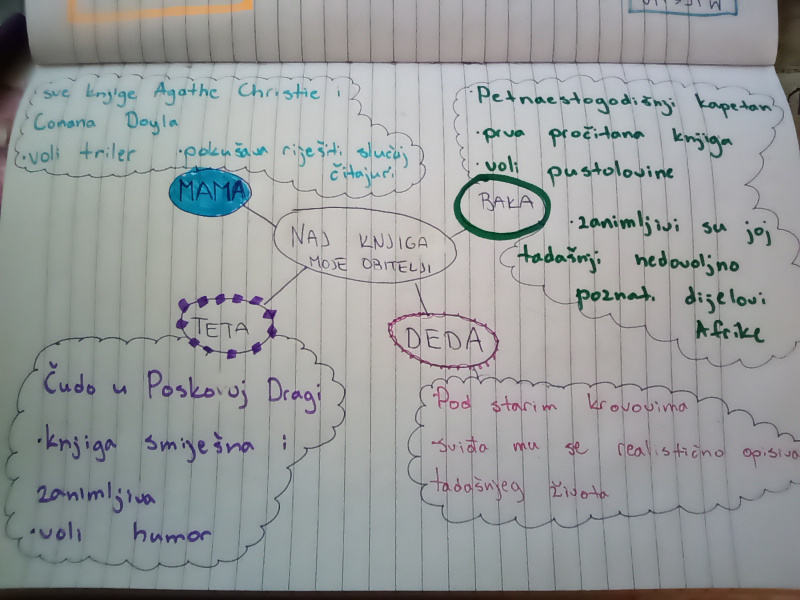 sve knjige Agathe Christie i
Conana Doyla
·voli triler ·pokušava riješiti slučaj
čitajući
MAMA
Petnaestogodišnji kapetan
·prva pročitana knjiga
·voli pustolovine
BAKA
·zanimljivi su joj
tadašnji nedovoljno
poznati dijelovi
Afrike
NAJ KNJIGA
MOJE OBITELJI
TETA
Čudo u Poskovoj Dragi
·knjiga smiješna i
zanimljiva
·voli humor
DEDA
Pod starim krovovima
·sviđa mu se realistično
tadašnjeg života